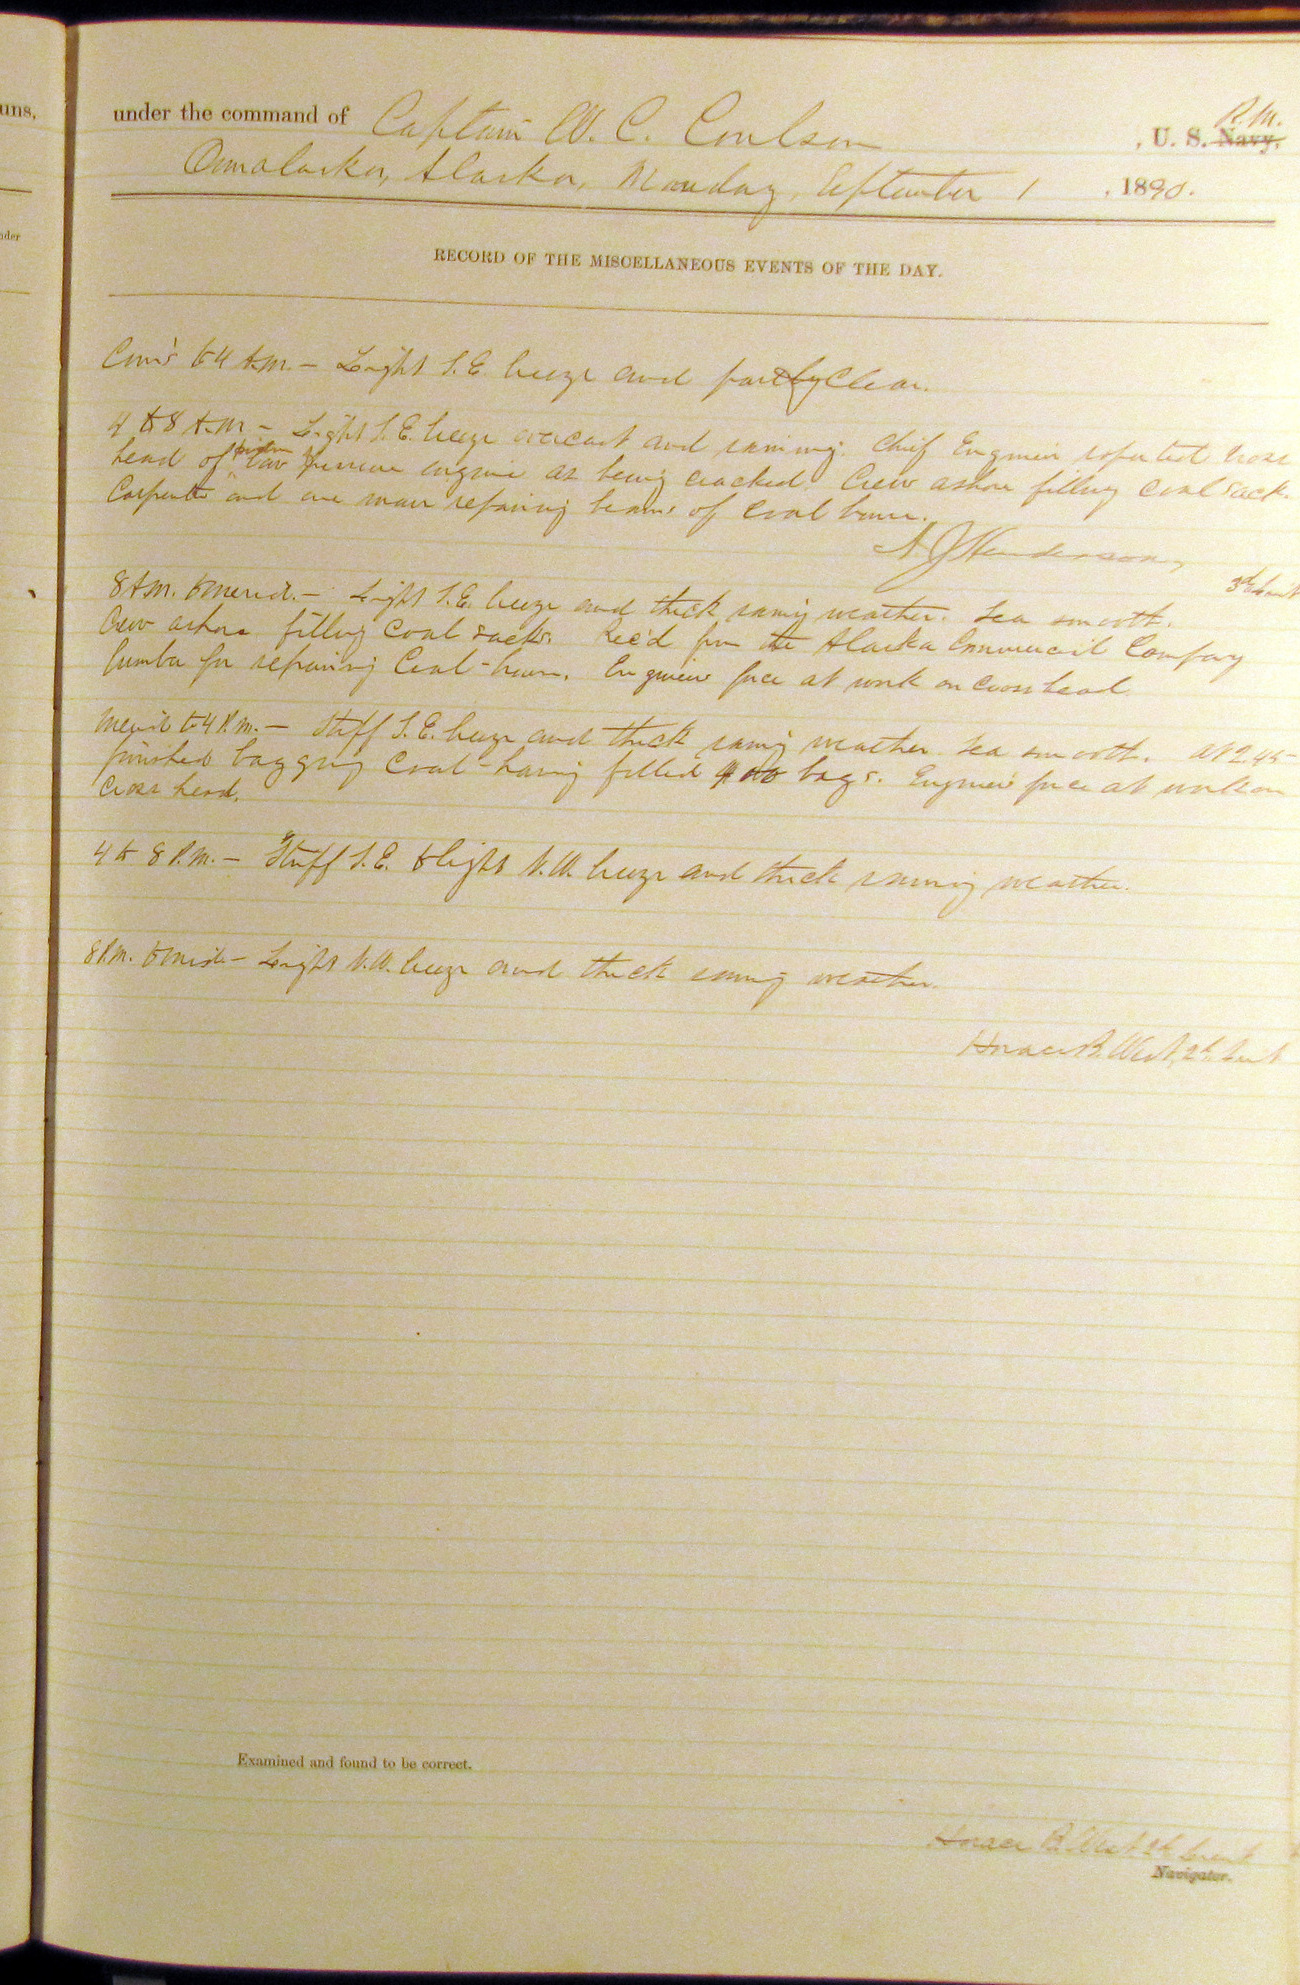 uns,
nder
under the command of Captain W. C. Coulson, U. S. Navy. R.M.
Ounalaska, Alaska, Monday, September 1, 1890.
RECORD OF THE MISCELLANEOUS EVENTS OF THE DAY.
Com's to 4 A.M. — Light S.E. breeze and partly clear.
4 to 8 A.M. — Light S.E. breeze overcast and raining. Chief Engineer reported cross
head of low pressure engine as being cracked. Crew ashore filling coal sack.
Carpenter and one man repairing beams of coal
Henderson,
3d Lieut
8 A.M. to merid. — Light S.E. breeze and thick rainy weather. Sea smooth.
Crew ashore filling coal sacks. Rec'd from the Alaska Commercial Company
lumber for repairing Coal- Engineer force at work on cross head.
Merid to 4 P.M. — Stiff S.E. breeze and thick rainy weather. Sea smooth. At 2.45
finished bagging coal - having filled 900 bags. Engineer force at work on
cross head.
4 to 8 P.M. — Stiff S.E. to light N.W. breeze and thick raining weather.
8 P.M. to mid. — Light N.W. breeze and thick rainy weather.
Horace B. West, 2d Lieut
Examined and found to be correct.
Horace B. West 2d Lieut
Navigator.